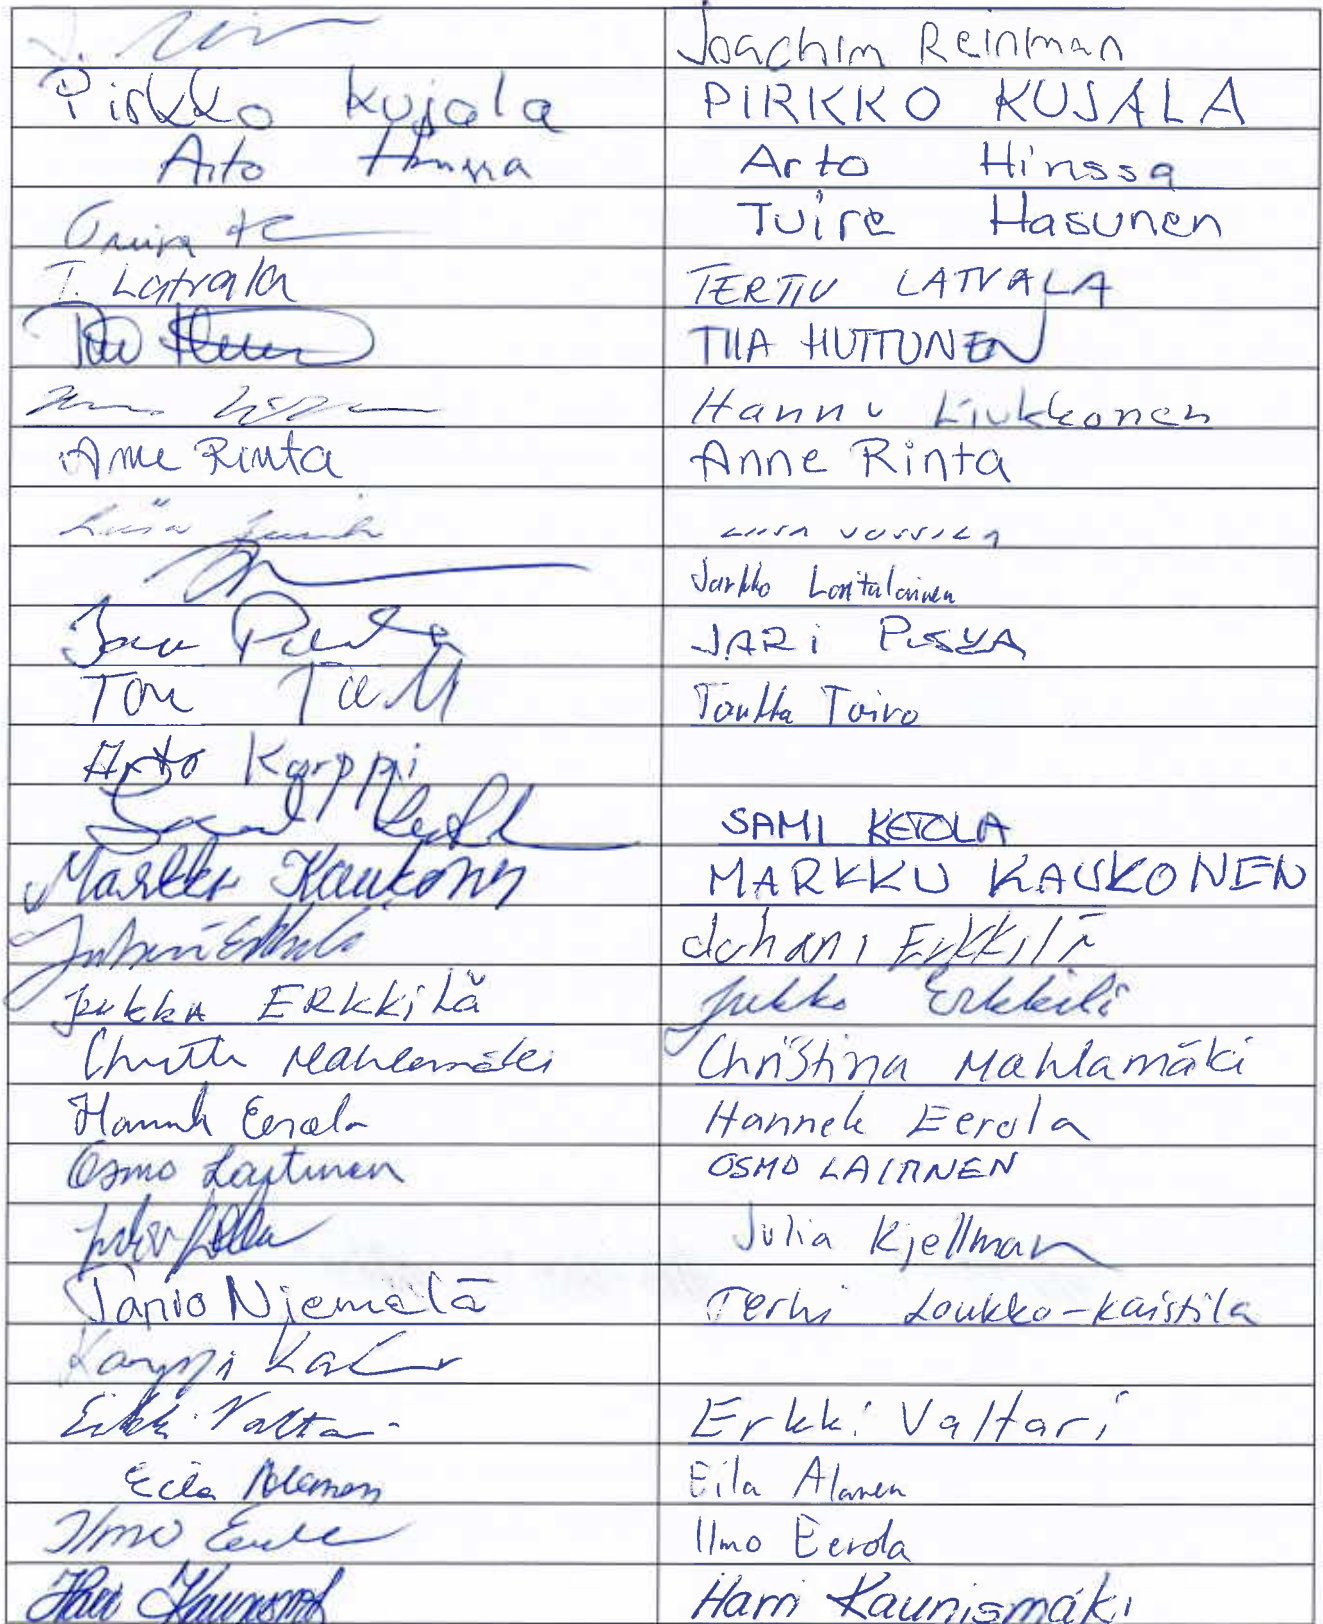 J. Joachim Reinman
Pirkko Kujala PIRKKO KUJALA
Arto Hinssa Arto Hinssa
Tuire Hasunen
T. Latvala TERTTU LATVALA
TIIA HUTTUNEN
Hannu Liukkonen
Anne Rinta Anne Rinta
Liisa
Jarkko
Jari JARI
Toukka Toivo
Arto Karppi
SAMI KETOLA
Markku Kaukonen MARKKU KAUKONEN
Juhani Erkkilä Juhani Erkkilä
Jukka ERKKiLä Jukka Erkkilä
Mahlamäki Christina Mahlamäki
Eerola Hannele Eerola
Osmo Laitinen OSMO LAITINEN
Julia Kjellman
Niemelä Terhi Loukko-Kaistila
Karppi
Erkki Valtari Erkki Valtari
Eila Alanen Eila Alanen
Ilmo Eerola Ilmo Eerola
Harri Kaunismäki Harri Kaunismäki